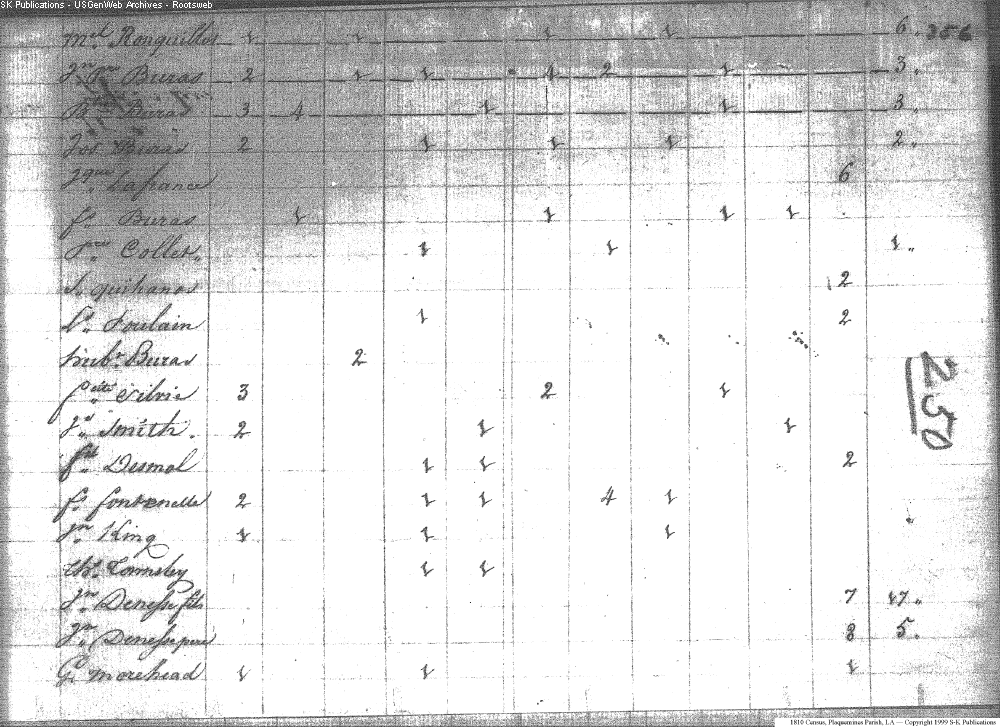 SK Publications - USGenWeb Archives - Rootsweb
ml. Ronquilles 1 1 1 1 6. 256
Jn Bte Buras 2 1 1 4 2 1 3.
Buras 3 4 1 1 3.
Jos. Buras 2 1 1 1 2.
Jques Lafrance 6
fs. Buras 1 1 1 1
Collet. 1 1 1.
quihanos 2
Ls. Toulain 1 2
hub. Buras 2
Silvie 3 2 1
Js. Smith. 2 1 1
fs. Desmal 1 1 2
fs. fontenelle 2 1 1 4 1
Jn. King 1 1 1
Ths. Cormsley 1 1
Jn. Denesse fils 7 17.
Jn. Denesse pere 8 5.
G. morehead 1 1 1
250
1810 Census, Plaquemines Parish, LA — Copyright 1999 S-K Publications